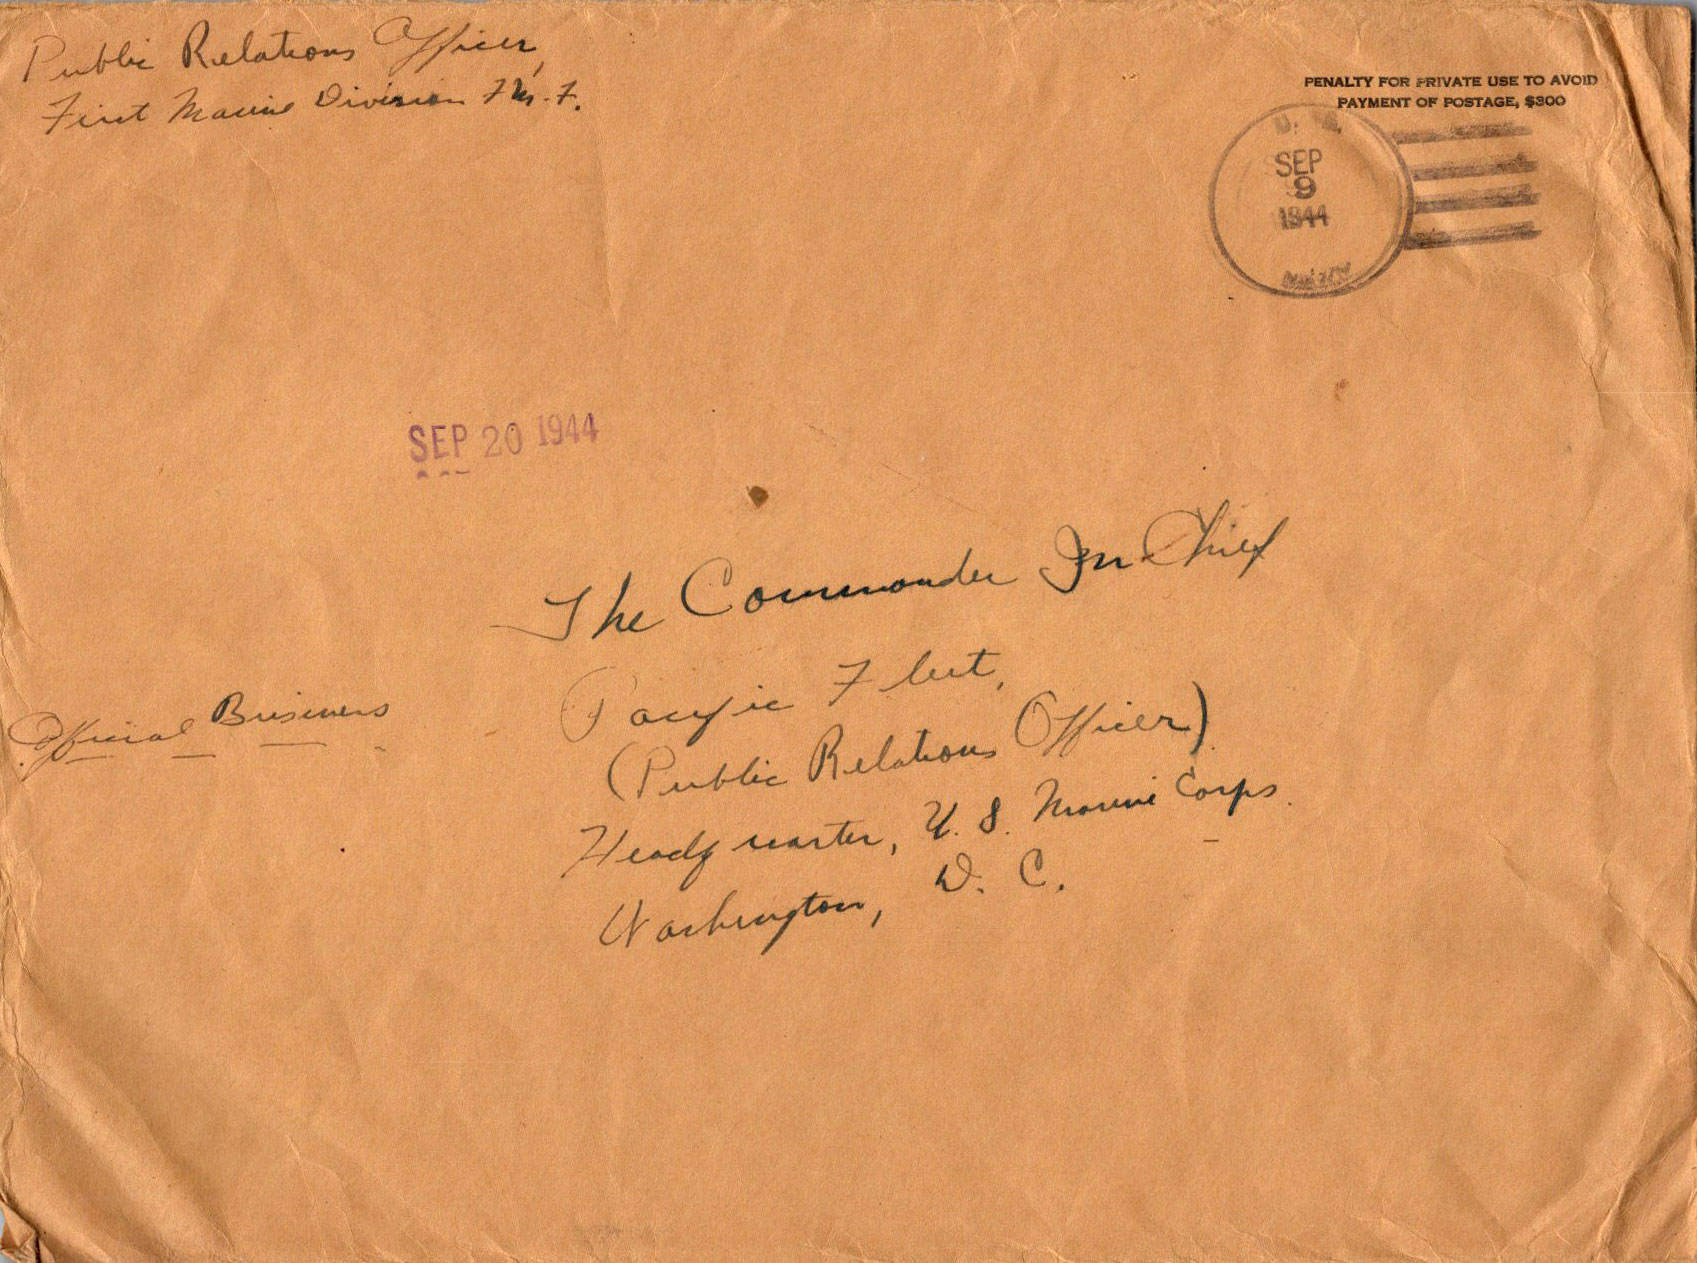 Public Relations Officer,
First Marine Division F.M.F.
PENALTY FOR PRIVATE USE TO AVOID
PAYMENT OF POSTAGE, $300
U. S.
SEP
9
1944
NAVY
SEP 20 1944
The Commander In Chief
Pacific Fleet,
(Public Relations Officer)
Official Business
Headquarter, U. S. Marine Corps.
Washington, D. C.